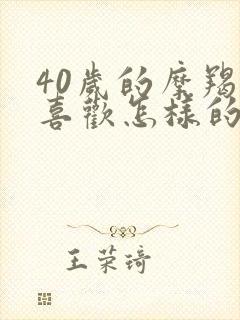 40岁的摩羯
喜歡怎樣的
王荣琦